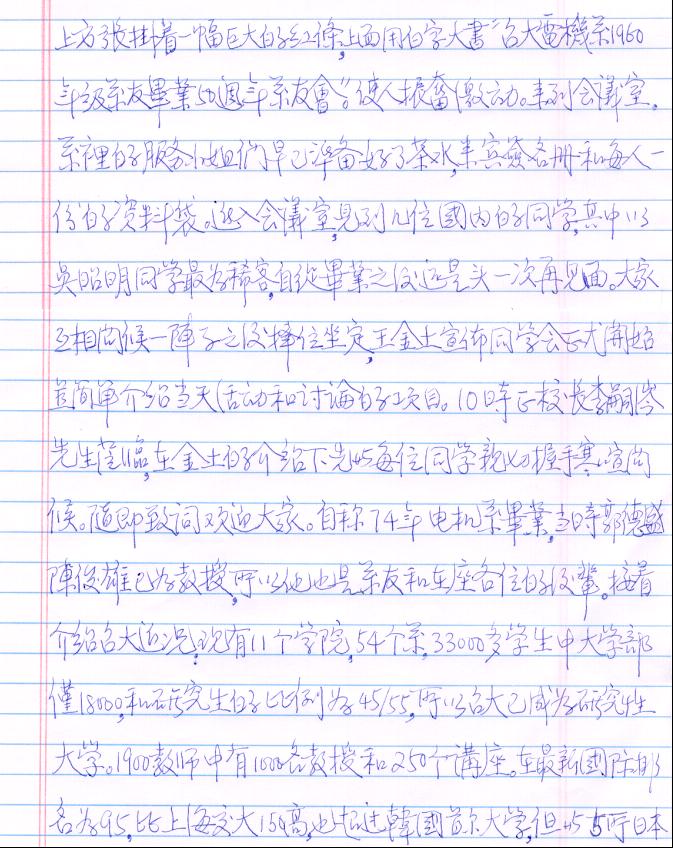 上方張掛着一幅巨大的红條,上面用白字大書"台大電機系1960
年级系友畢業50週年系友會"。使人振奮激动。来到会議室,
系裡的服务小姐们早已準备好了茶水,来宾簽名册和每人一
份的資料袋。进入会議室,見到几位國内的同学,其中以
吳昭明同学最为稀客,自從畢業之後,这是头一次再見面。大家
互相问候一陣子之後,擇位坐定,王金土宣佈同学会正式開始
並简单介绍当天活动和讨論的项目。10時正校长李嗣涔
先生蒞臨,在金土的介绍下先與每位同学親切握手寒暄问
候。随即致词欢迎大家。自称74年电机系畢業,当時郭德盛
陳俊雄已为教授,所以他也是系友和在座各位的後輩。接着
介绍台大近况:现有11个学院,54个系,33000多学生中大学部
僅18000,和研究生的比例为45/55,所以台大已成为研究性
大学。1900教师中有1000名教授和250个講座。在最新國际排
名为95,比上海交大150高,也超过韓國首尔大学,但與5所日本